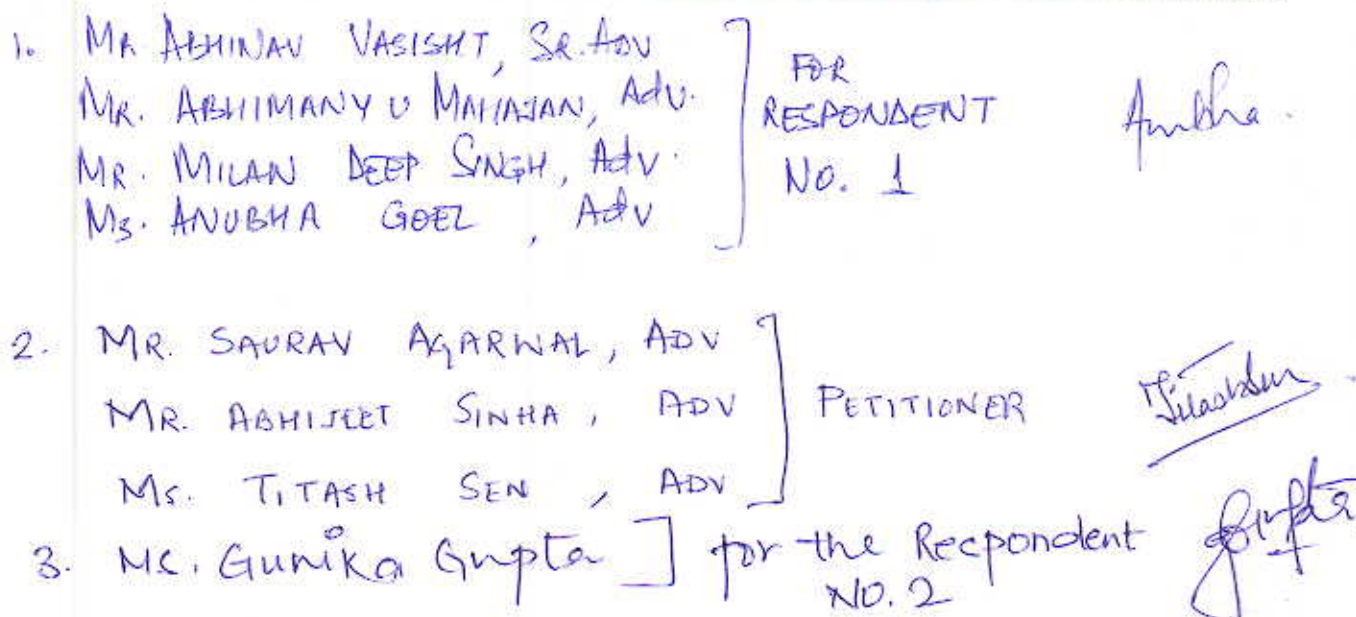 1. MR ABHINAV VASISHT, SR. ADV
MR. ABHIMANYU MAHAJAN, Adv.
MR. MILAN DEEP SINGH, Adv.
Ms. ANUBHA GOEL, Adv
FOR
RESPONDENT
NO. 1
Anubha.
2. MR. SAURAV AGARWAL, ADV
MR. ABHIJEET SINHA, ADV
Ms. TITASH SEN, ADV
PETITIONER
Titash Sen
3. Ms. Gunika Gupta ] for the Respondent
NO. 2
Gupta